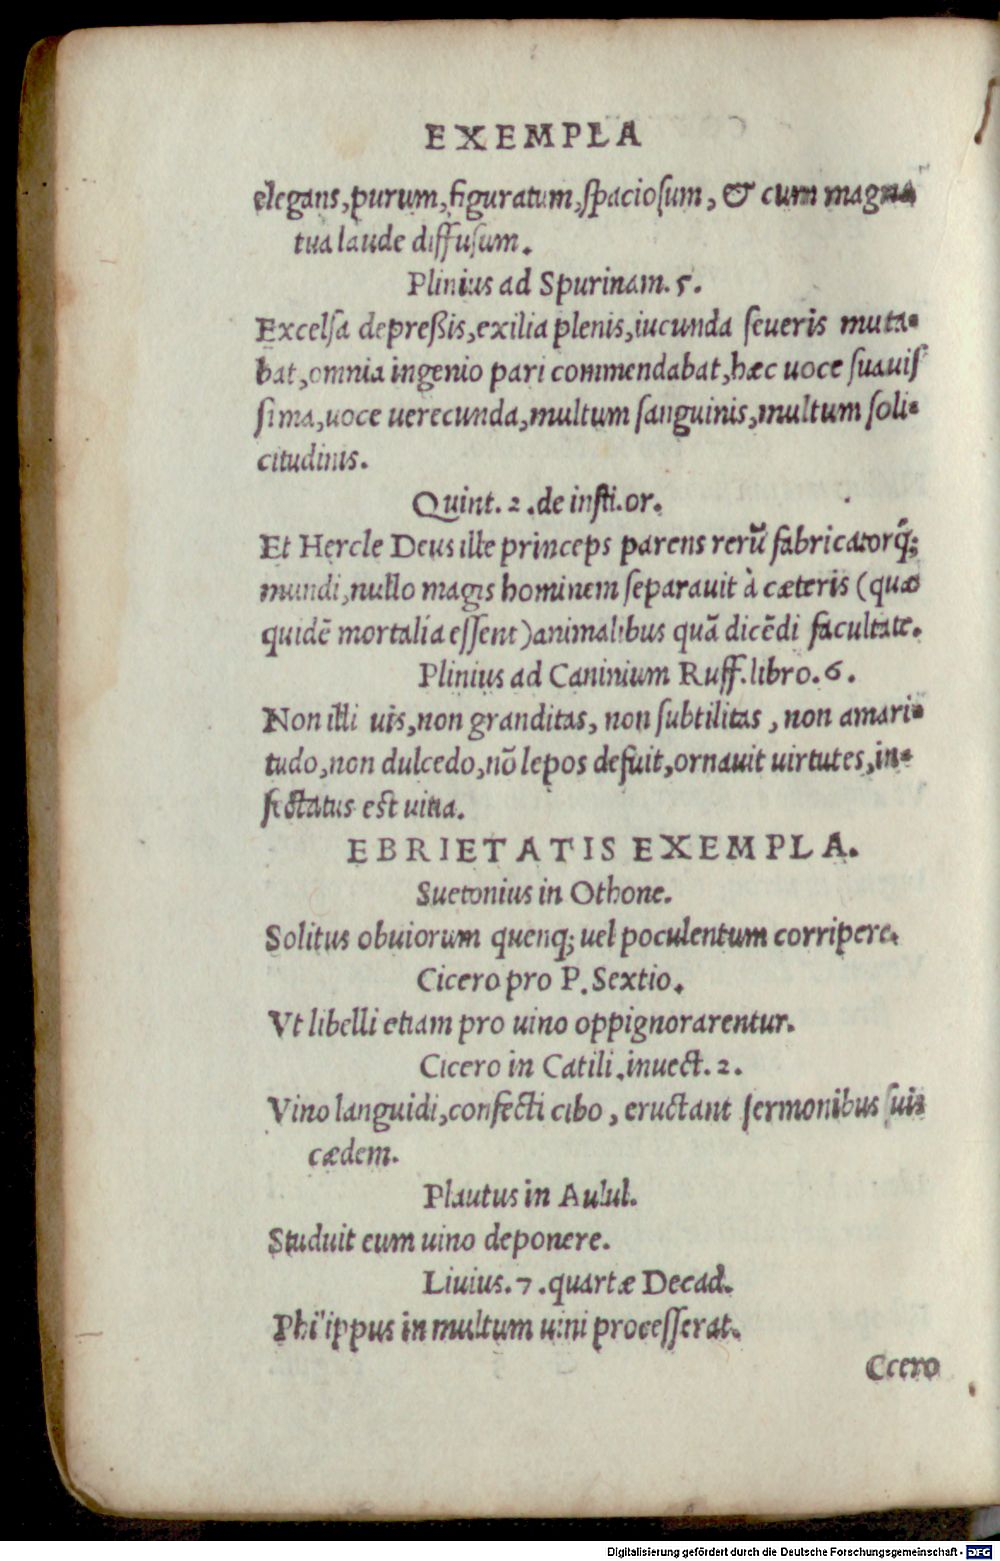 EXEMPLA
elegans,purum,figuratum,spaciosum, & cum magna
tua laude diffusum.
Plinius ad Spurinam. 5.
Excelsa depreßis,exilia plenis,iucunda seueris muta-
bat,omnia ingenio pari commendabat,hæc uoce suauis
sima,uoce uerecunda,multum sanguinis,multum soli-
citudinis.
Quint. 2 .de insti.or.
Et Hercle Deus ille princeps parens rerū fabricatorq́;
mundi,nullo magis hominem separauit à cæteris (quæ
quidē mortalia essent)animalibus quā dicēdi facultate.
Plinius ad Caninium Ruff.libro. 6 .
Non illi uis,non granditas, non subtilitas , non amari-
tudo,non dulcedo,nō lepos defuit,ornauit uirtutes,in-
sectatus est uitia.
EBRIETATIS EXEMPLA.
Suetonius in Othone.
Solitus obuiorum quenq; uel poculentum corripere.
Cicero pro P. Sextio.
Vt libelli etiam pro uino oppignorarentur.
Cicero in Catili.inuect. 2 .
Vino languidi,confecti cibo , eructant sermonibus suis
cædem.
Plautus in Aulul.
Studuit eum uino deponere.
Liuius. 7 .quartæ Decad.
Philippus in multum uini processerat.
Ccero
Digitalisierung gefördert durch die Deutsche Forschungsgemeinschaft - DFG